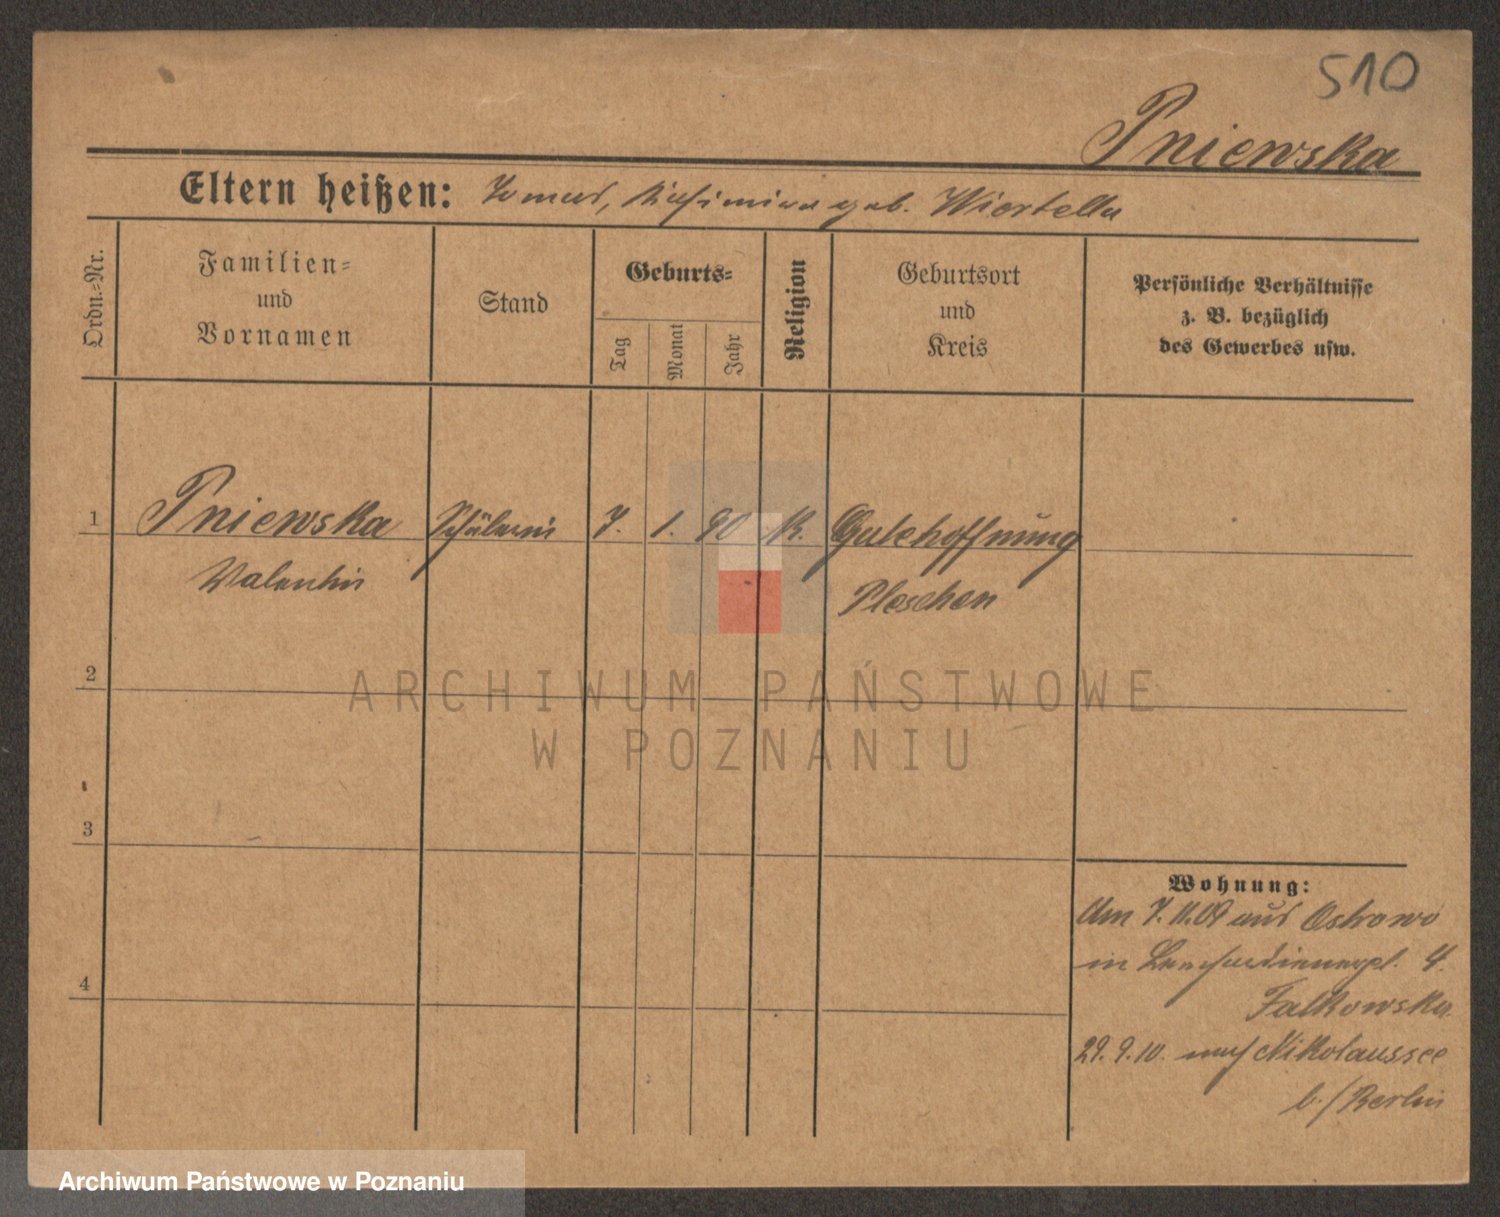 510
Pniewska
Eltern heißen: Tomas, Kasimira geb. Wiertella
Ordn.-Nr.
Familien-
und
Vornamen
Stand
Geburts-
Tag
Monat
Jahr
Religion
Geburtsort
und
Kreis
Persönliche Verhältnisse
z. B. bezüglich
des Gewerbes usw.
1 Pniewska Schülerin 7. 1. 90 K. Gutehoffnung
Valentin Pleschen
2
3
4
Wohnung:
Am 7.11.07 aus Ostrowo
in 4.
Falkowska
29.9.10. nach Nikolaussee
b./Berlin
ARCHIWUM PAŃSTWOWE
W POZNANIU
Archiwum Państwowe w Poznaniu